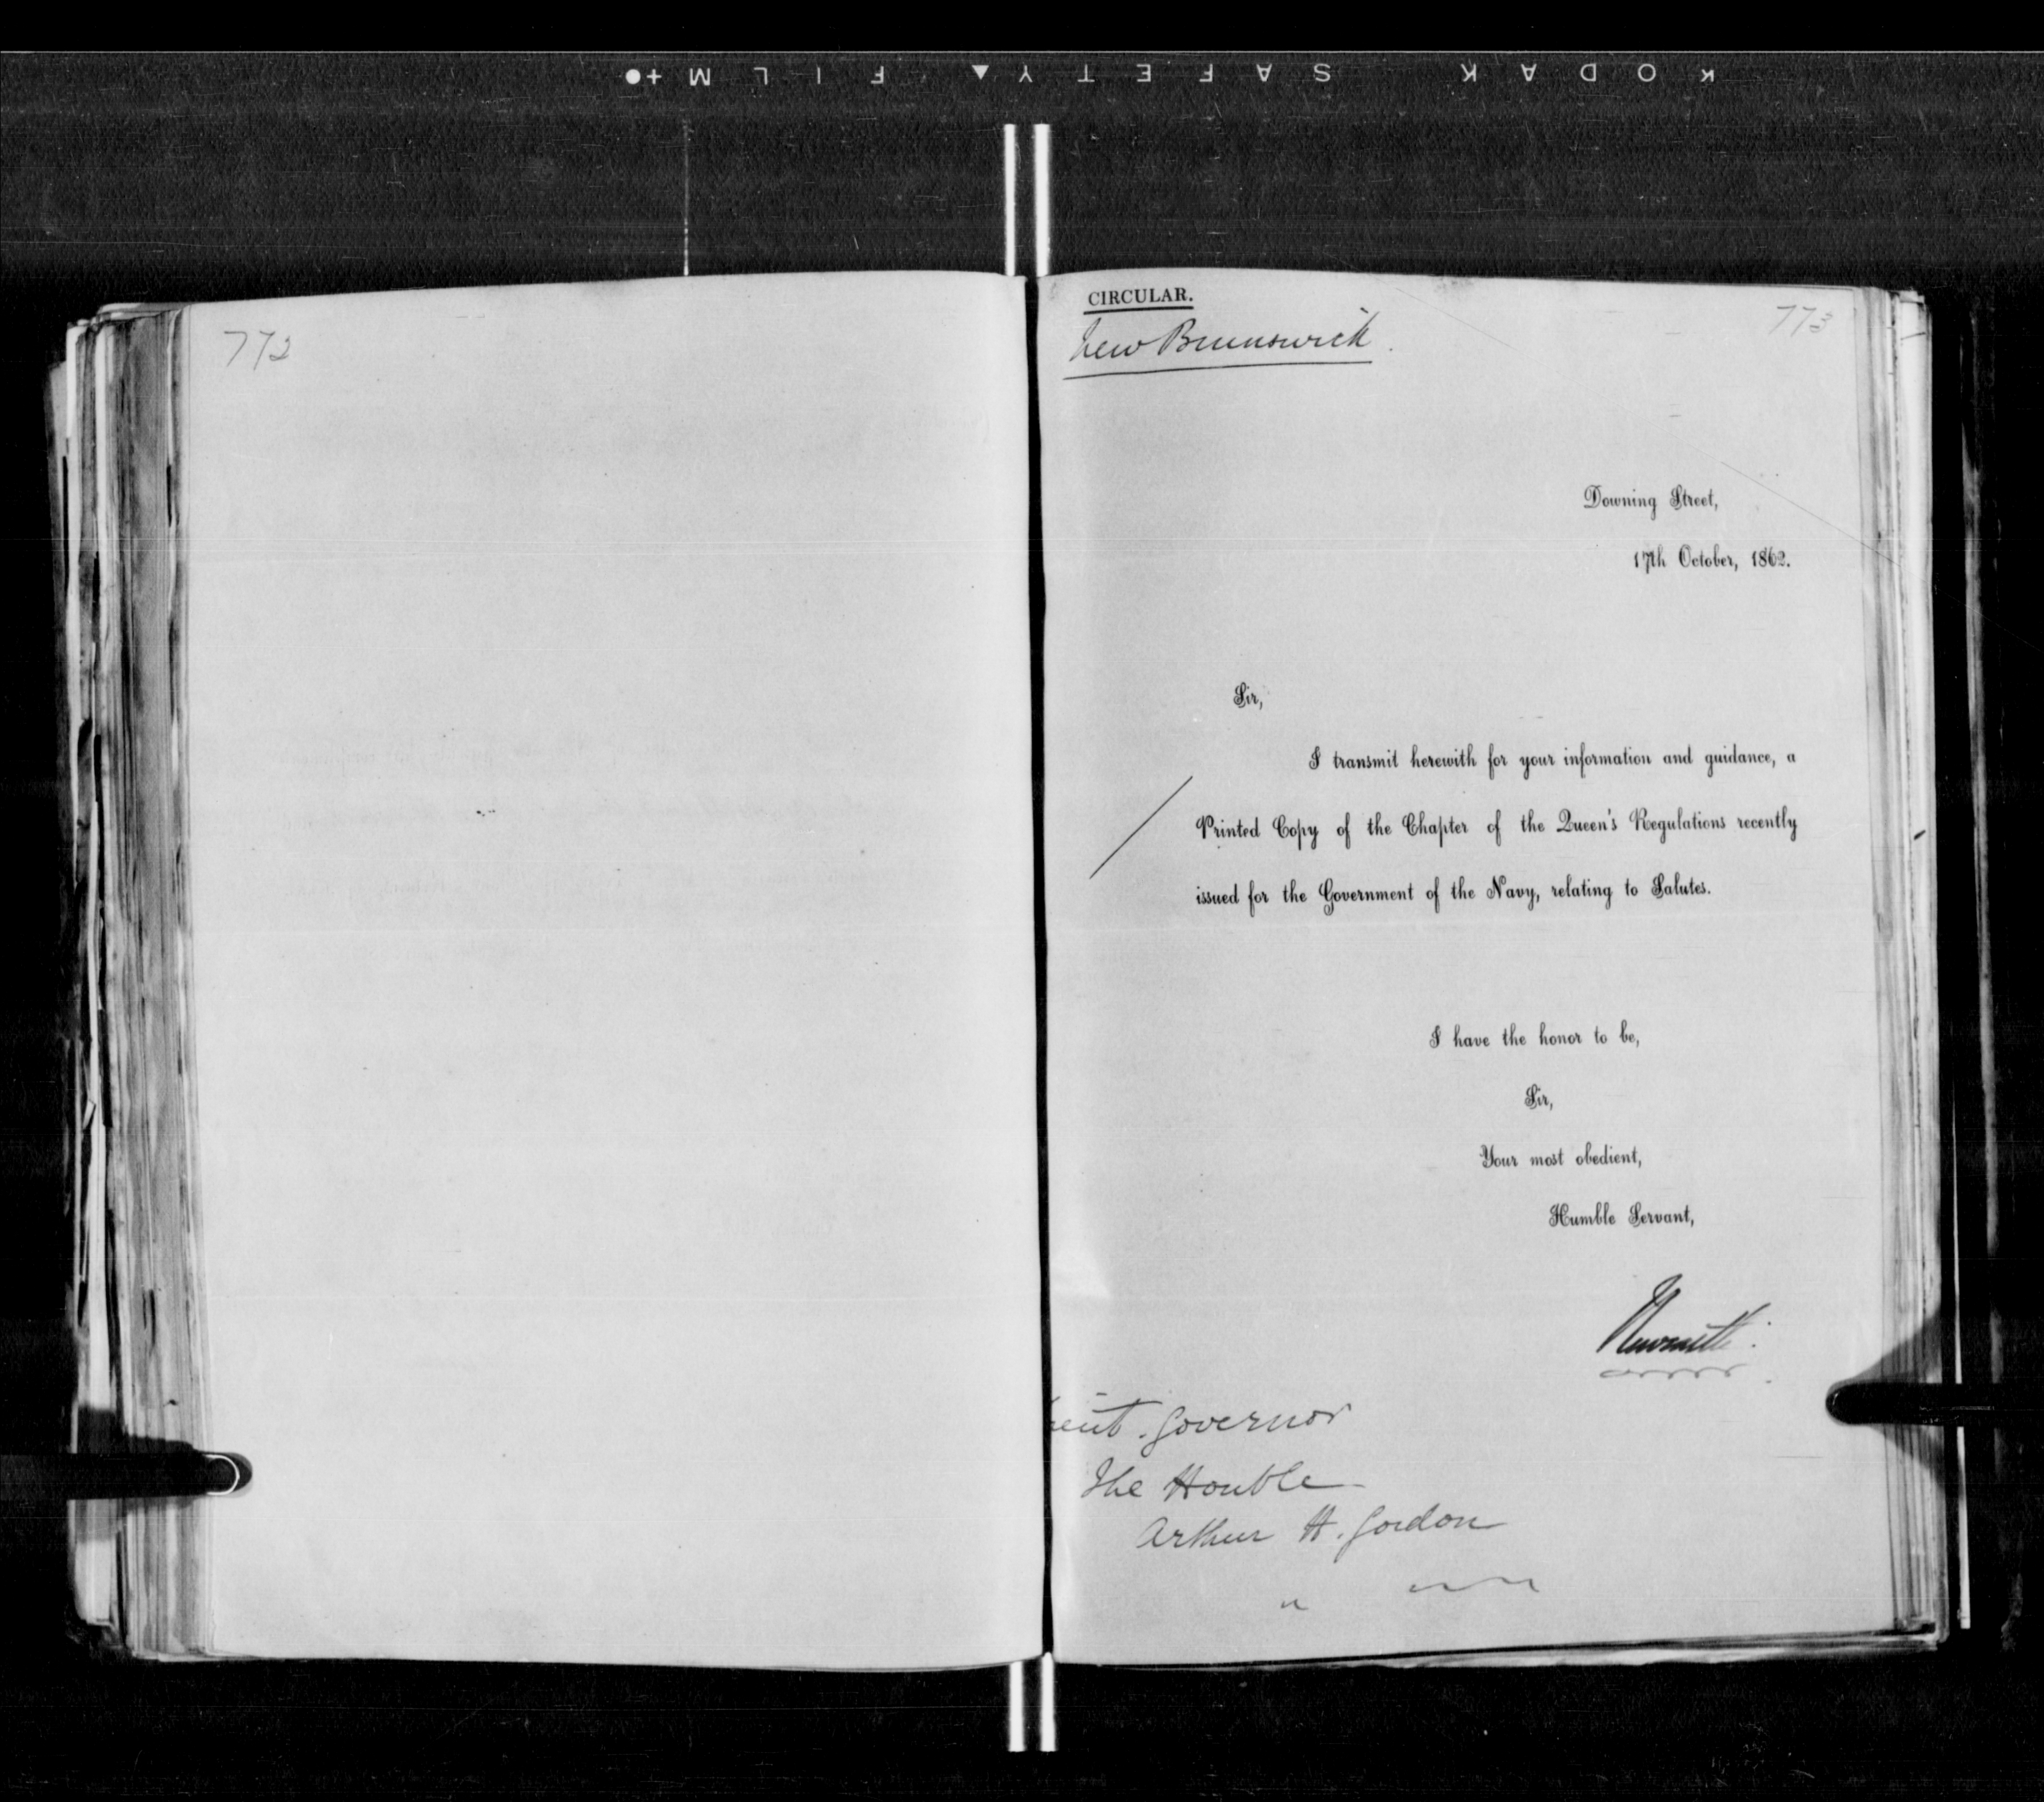 KODAK SAFETY FILM
772
CIRCULAR.
773
New Brunswick.
Downing Street,
17th October, 1862.
Sir,
I transmit herewith for your information and guidance, a
Printed Copy of the Chapter of the Queen's Regulations recently
issued for the Government of the Navy, relating to Salutes.
I have the honor to be,
Sir,
Your most obedient,
Humble Servant,
Newcastle.
Lieut. Governor
The Honble
Arthur H. Gordon